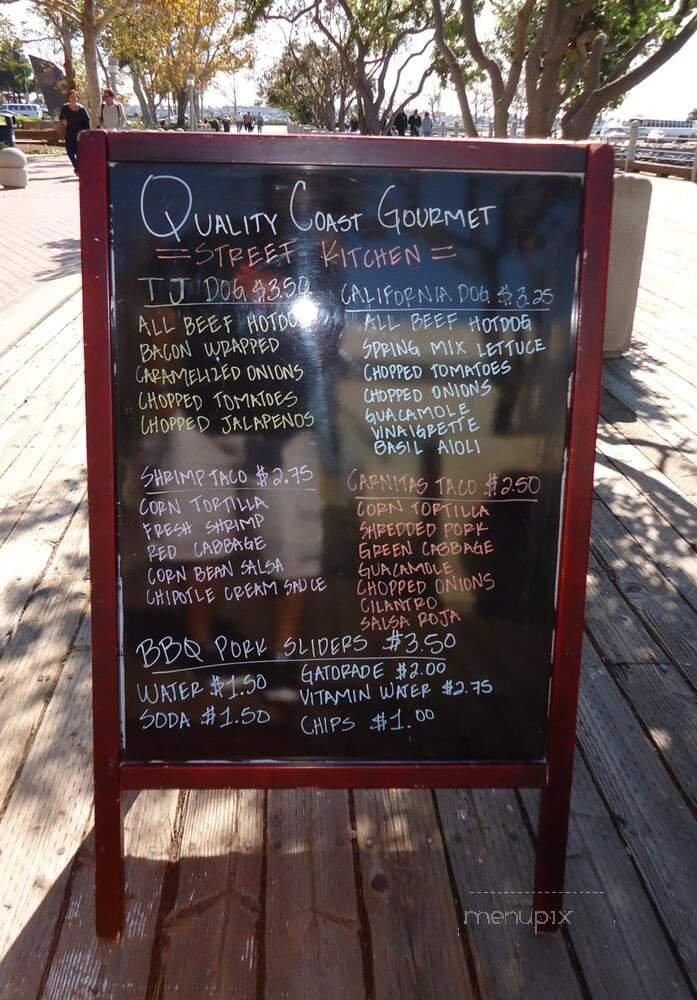 QUALITY COAST GOURMET
=STREET KITCHEN=
TJ DOG $3.50
ALL BEEF HOTDOG
BACON WRAPPED
CARAMELIZED ONIONS
CHOPPED TOMATOES
CHOPPED JALAPENOS
CALIFORNIA DOG $3.25
ALL BEEF HOTDOG
SPRING MIX LETTUCE
CHOPPED TOMATOES
CHOPPED ONIONS
GUACAMOLE
VINAIGRETTE
BASIL AIOLI
SHRIMP TACO $2.75
CORN TORTILLA
FRESH SHRIMP
RED CABBAGE
CORN BEAN SALSA
CHIPOTLE CREAM SAUCE
CARNITAS TACO $2.50
CORN TORTILLA
SHREDDED PORK
GREEN CABBAGE
GUACAMOLE
CHOPPED ONIONS
CILANTRO
SALSA ROJA
BBQ PORK SLIDERS $3.50
WATER $1.50
SODA $1.50
GATORADE $2.00
VITAMIN WATER $2.75
CHIPS $1.00
menupix